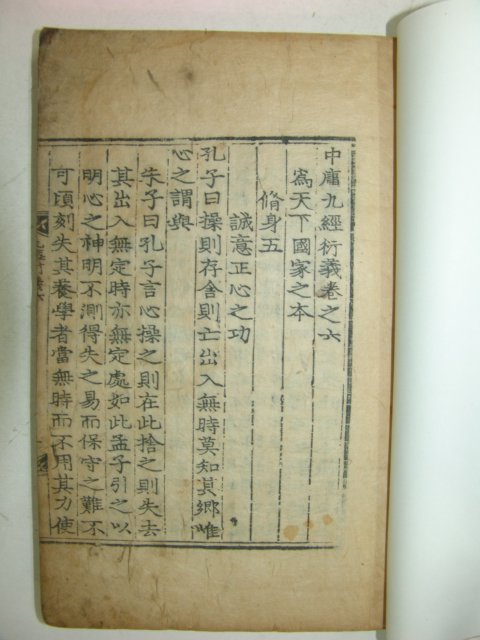 中庸九經衍義卷之六
爲天下國家之本
脩身五
誠意正心之功
孔子曰操則存舍則亡出入無時莫知其鄕惟
心之謂與
朱子曰孔子言心操之則在此捨之則失去
其出入無定時亦無定處如此孟子引之以
明心之神明不測得失之易而保守之難不
可頃刻失其養學者當無時而不用其力使